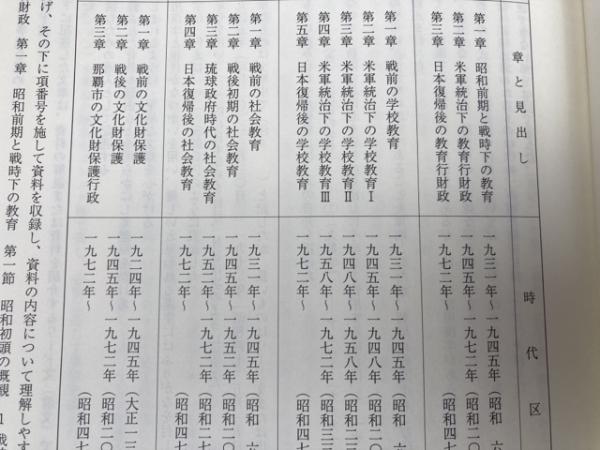 章と見出し
時代区
第一章 昭和前期と戦時下の教育 一九三一年~一九四五年(昭和 六
第二章 米軍統治下の教育行財政 一九四五年~一九七二年(昭和二〇
第三章 日本復帰後の教育行財政 一九七二年~ (昭和四七
第一章 戦前の学校教育 一九三一年~一九四五年(昭和 六
第二章 米軍統治下の学校教育Ⅰ 一九四五年~一九四八年(昭和二〇
第三章 米軍統治下の学校教育Ⅱ 一九四八年~一九五八年(昭和二三
第四章 米軍統治下の学校教育Ⅲ 一九五八年~一九七二年(昭和三三
第五章 日本復帰後の学校教育 一九七二年~ (昭和四七
第一章 戦前の社会教育 一九三一年~一九四五年(昭和 六
第二章 戦後初期の社会教育 一九四五年~一九五二年(昭和二〇
第三章 琉球政府時代の社会教育 一九五二年~一九七二年(昭和二七
第四章 日本復帰後の社会教育 一九七二年~ (昭和四七
第一章 戦前の文化財保護 一九二四年~一九四五年(大正一三
第二章 戦後の文化財保護 一九四五年~一九七二年(昭和二〇
第三章 那覇市の文化財保護行政 一九七二年~ (昭和四七
げ、その下に項番号を施して資料を収録し、資料の内容について理解しやす
財政 第一章 昭和前期と戦時下の教育 第一節 昭和初頭の概観 1 戦